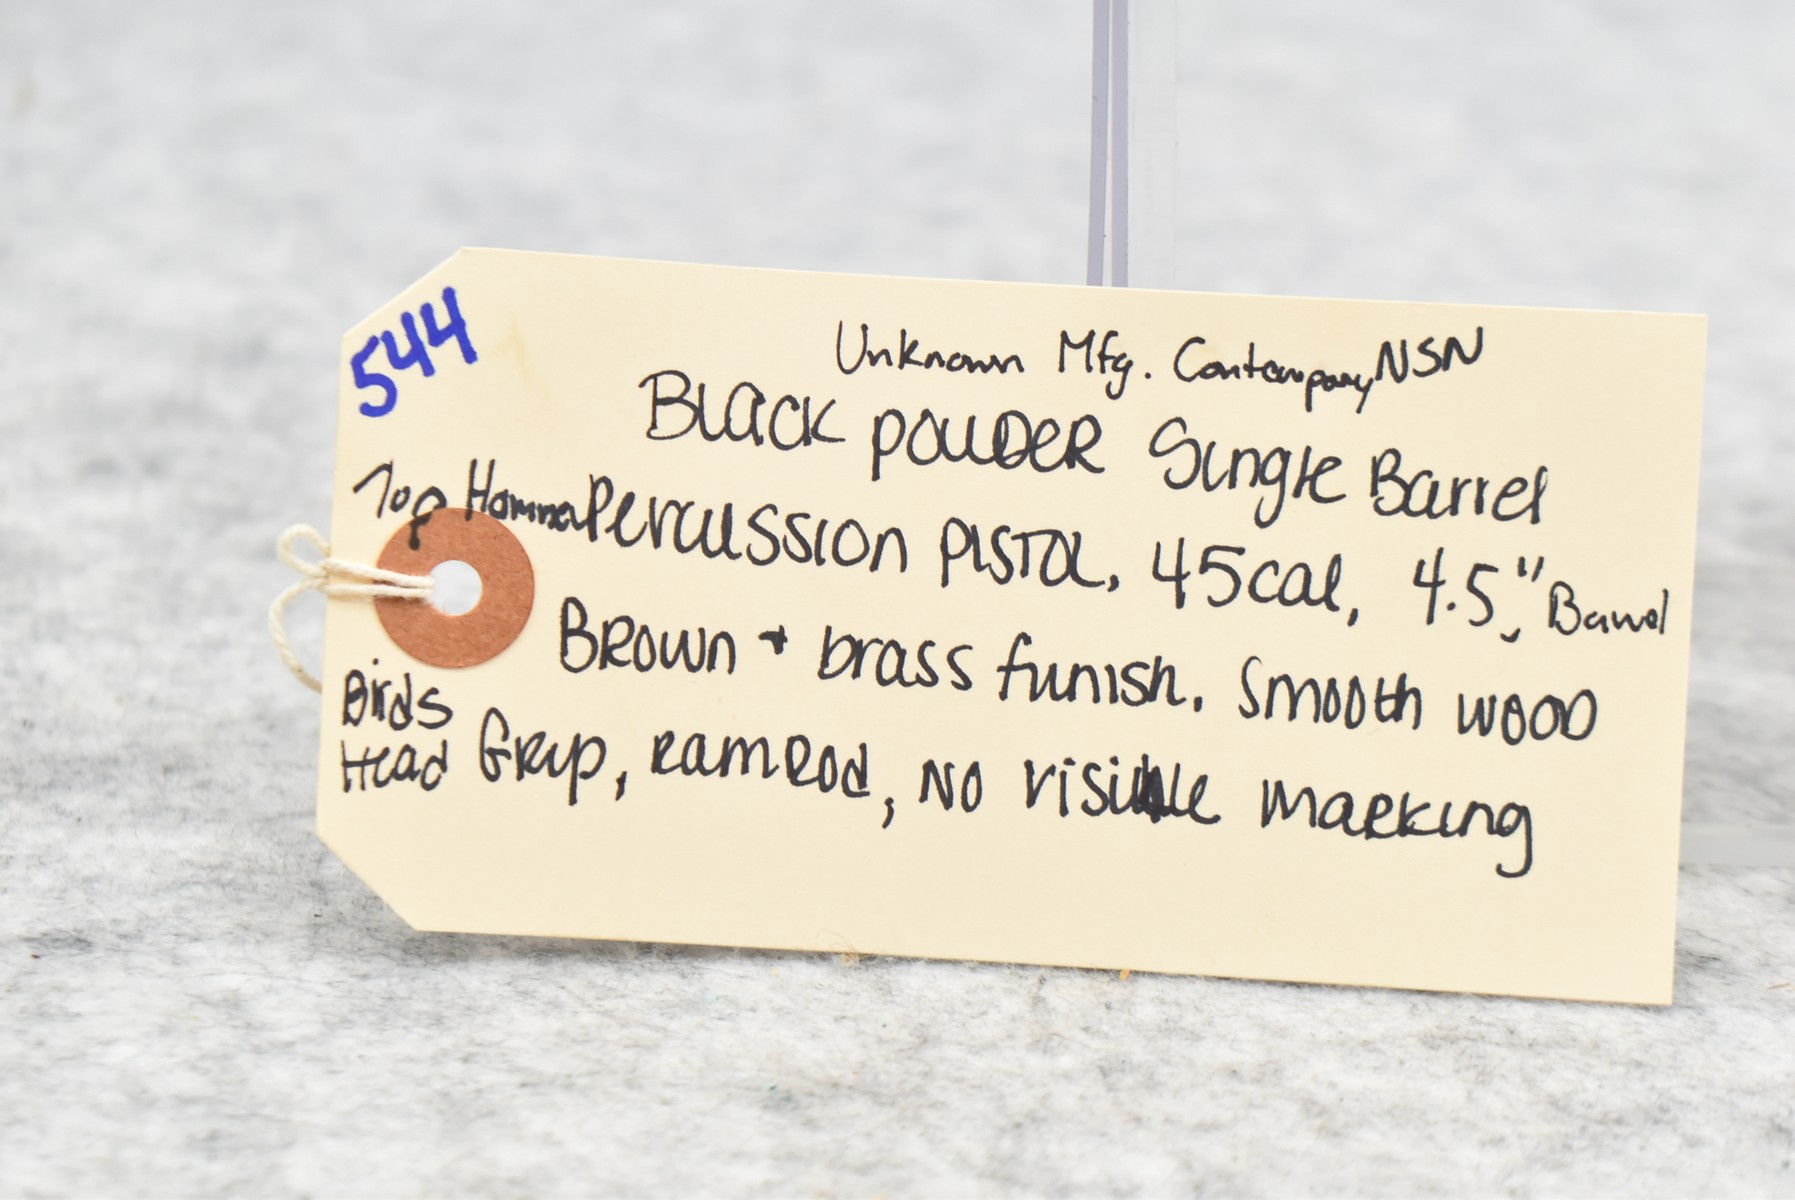 544
Unknown Mfg. Contempary NSN
Black powder Single Barrel
Top Hammer Percussion Pistol, 45cal, 4.5," Barrel
Brown + brass finish. Smooth wood
Birds Head Grip, ramrod, No visible marking